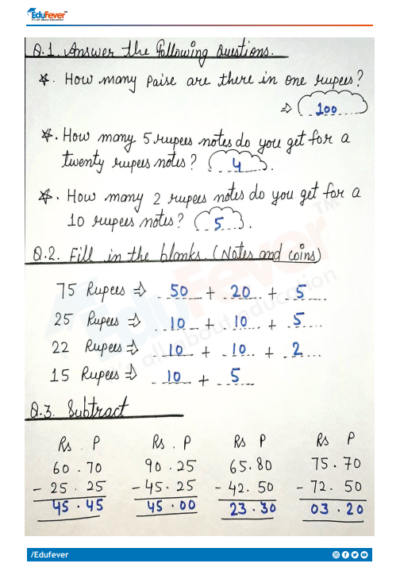 EduFever
Q.1. Answer the following Questions.
☆. How many paise are there in one rupees?
⇒ 100
☆. How many 5 rupees notes do you get for a
twenty rupees notes? 4
☆. How many 2 rupees notes do you get for a
10 rupees notes? 5
Q.2. Fill in the blanks. (Notes and coins)
75 Rupees ⇒ 50 + 20 + 5
25 Rupees ⇒ 10 + 10 + 5
22 Rupees ⇒ 10 + 10 + 2
15 Rupees ⇒ 10 + 5
Q.3. Subtract
Rs . P Rs . P Rs P Rs P
60.70 90.25 65.80 75.70
- 25.25 - 45.25 - 42.50 - 72.50
45.45 45.00 23.30 03.20
EduFever
all about education
TM
/Edufever